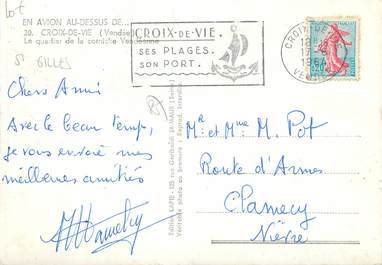 Lot
EN AVION AU-DESSUS DE...
20. CROIX-DE-VIE (Vendée)
Le quartier de la corniche Vendéenne
St GILLES
CROIX-DE-VIE.
SES PLAGES.
SON PORT.
CROIX-DE-VIE
VENDÉE
0,20
Chers Amis
Avec le beau temps,
je vous envoie mes
meilleures amitiés
Mr et Mme M. Pot
Route d'Armes
Clamecy
Nièvre